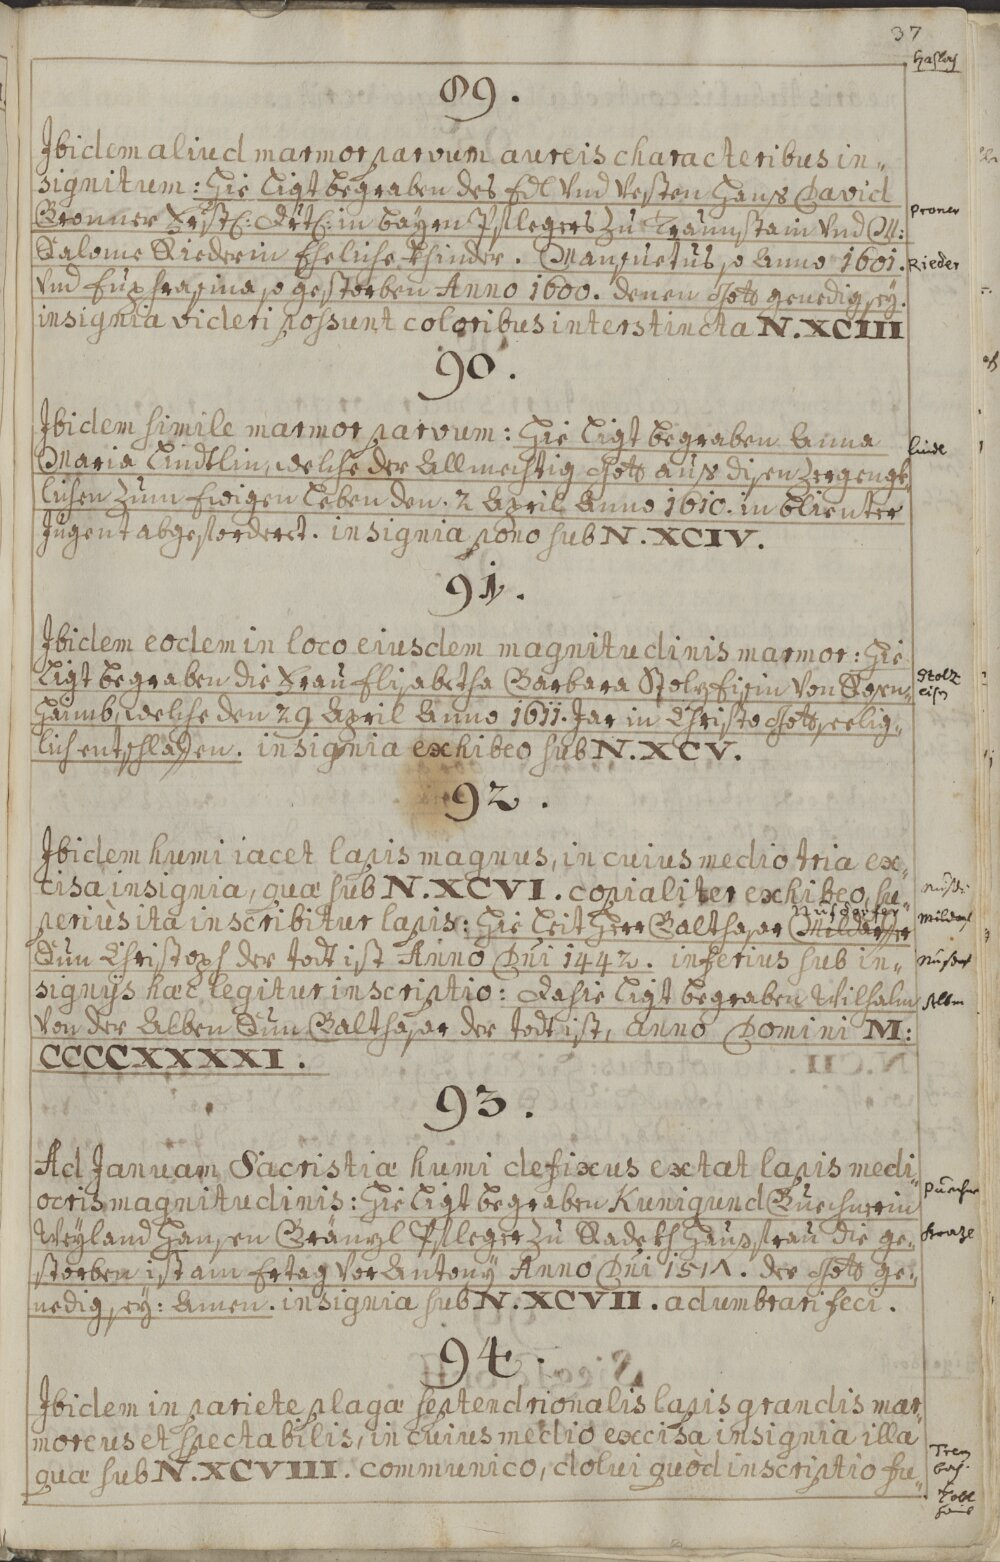 37
Haslach
89.
Ibidem aliud marmor parvum aureis characteribus in=
signitum: Hie Ligt begraben des Edl Vnd Vesten Hans David
Bronner Frstl: Drtl: in bayrn Pflegers Zu Traunstain Vnd M:
Proner
Salome Riederin Eheliche Khinder. Mansuetus so Anno 1601.
Rieder
Vnd Euphrasina so gestorben Anno 1600. denen Gott genedig sey.
insignia videri possunt coloribus interstincta N. XCIII
90.
Ibidem simile marmor parvum: Hie Ligt begraben Anna
Maria Lindtlin, welche der Allmechtig Gott aus disen Zergengk=
Lindl
lichen Zum Ewigen Leben den. 2 April Anno 1610. in blienter
Jugent abgefordert. insignia pono sub N. XCIV.
91.
Ibidem eodem in loco eiusdem magnitudinis marmor: Hie
Ligt begraben die Frau Elisabetha Barbara Stolzeisin Von Rosen=
Stolz
eisn
Haimb, welche den 29 April Anno 1611. Jar in Christo Gott seelig=
lich entschlaffen. insignia exhibeo sub N. XCV.
92.
Ibidem humi iacet lapis magnus, in cuius medio tria ex=
cisa insignia, quæ sub N. XCVI. copialiter exhibeo, su=
Nusdorfer
periùs ita inscribitur lapis: Hie Leit Herr Balthasar Mildorffer
Mildorf
Sun Christoph der todt ist Anno Dni 1442. inferius sub in=
Nusdorf
signijs hæc legitur inscriptio: Dahie Ligt begraben Wilhalm
Albm
Von der Alben Sun Balthasar der todt ist, anno Domini M:
CCCCXXXXI.
93.
Ad Januam Sacristiæ humi defixus extat lapis medi=
ocris magnitudinis: Hie Ligt begraben Kunigund Buechnerin
Puechner
Weyland Hansen Gränzl Pfleger Zu Radekh Hausfrau die ge=
storben ist am Ertag Vor Antony Anno Dni 1511. der Gott ge=
nedig sey: Amen. insignia sub N. XCVII. adumbrari feci.
94.
Ibidem in pariete plagæ septendrionalis lapis grandis mar=
moreus et spectabilis, in cuius medio excisa insignia illa
quæ sub N. XCVIII. communico, dolui quòd inscriptio fu=
Tren
bach